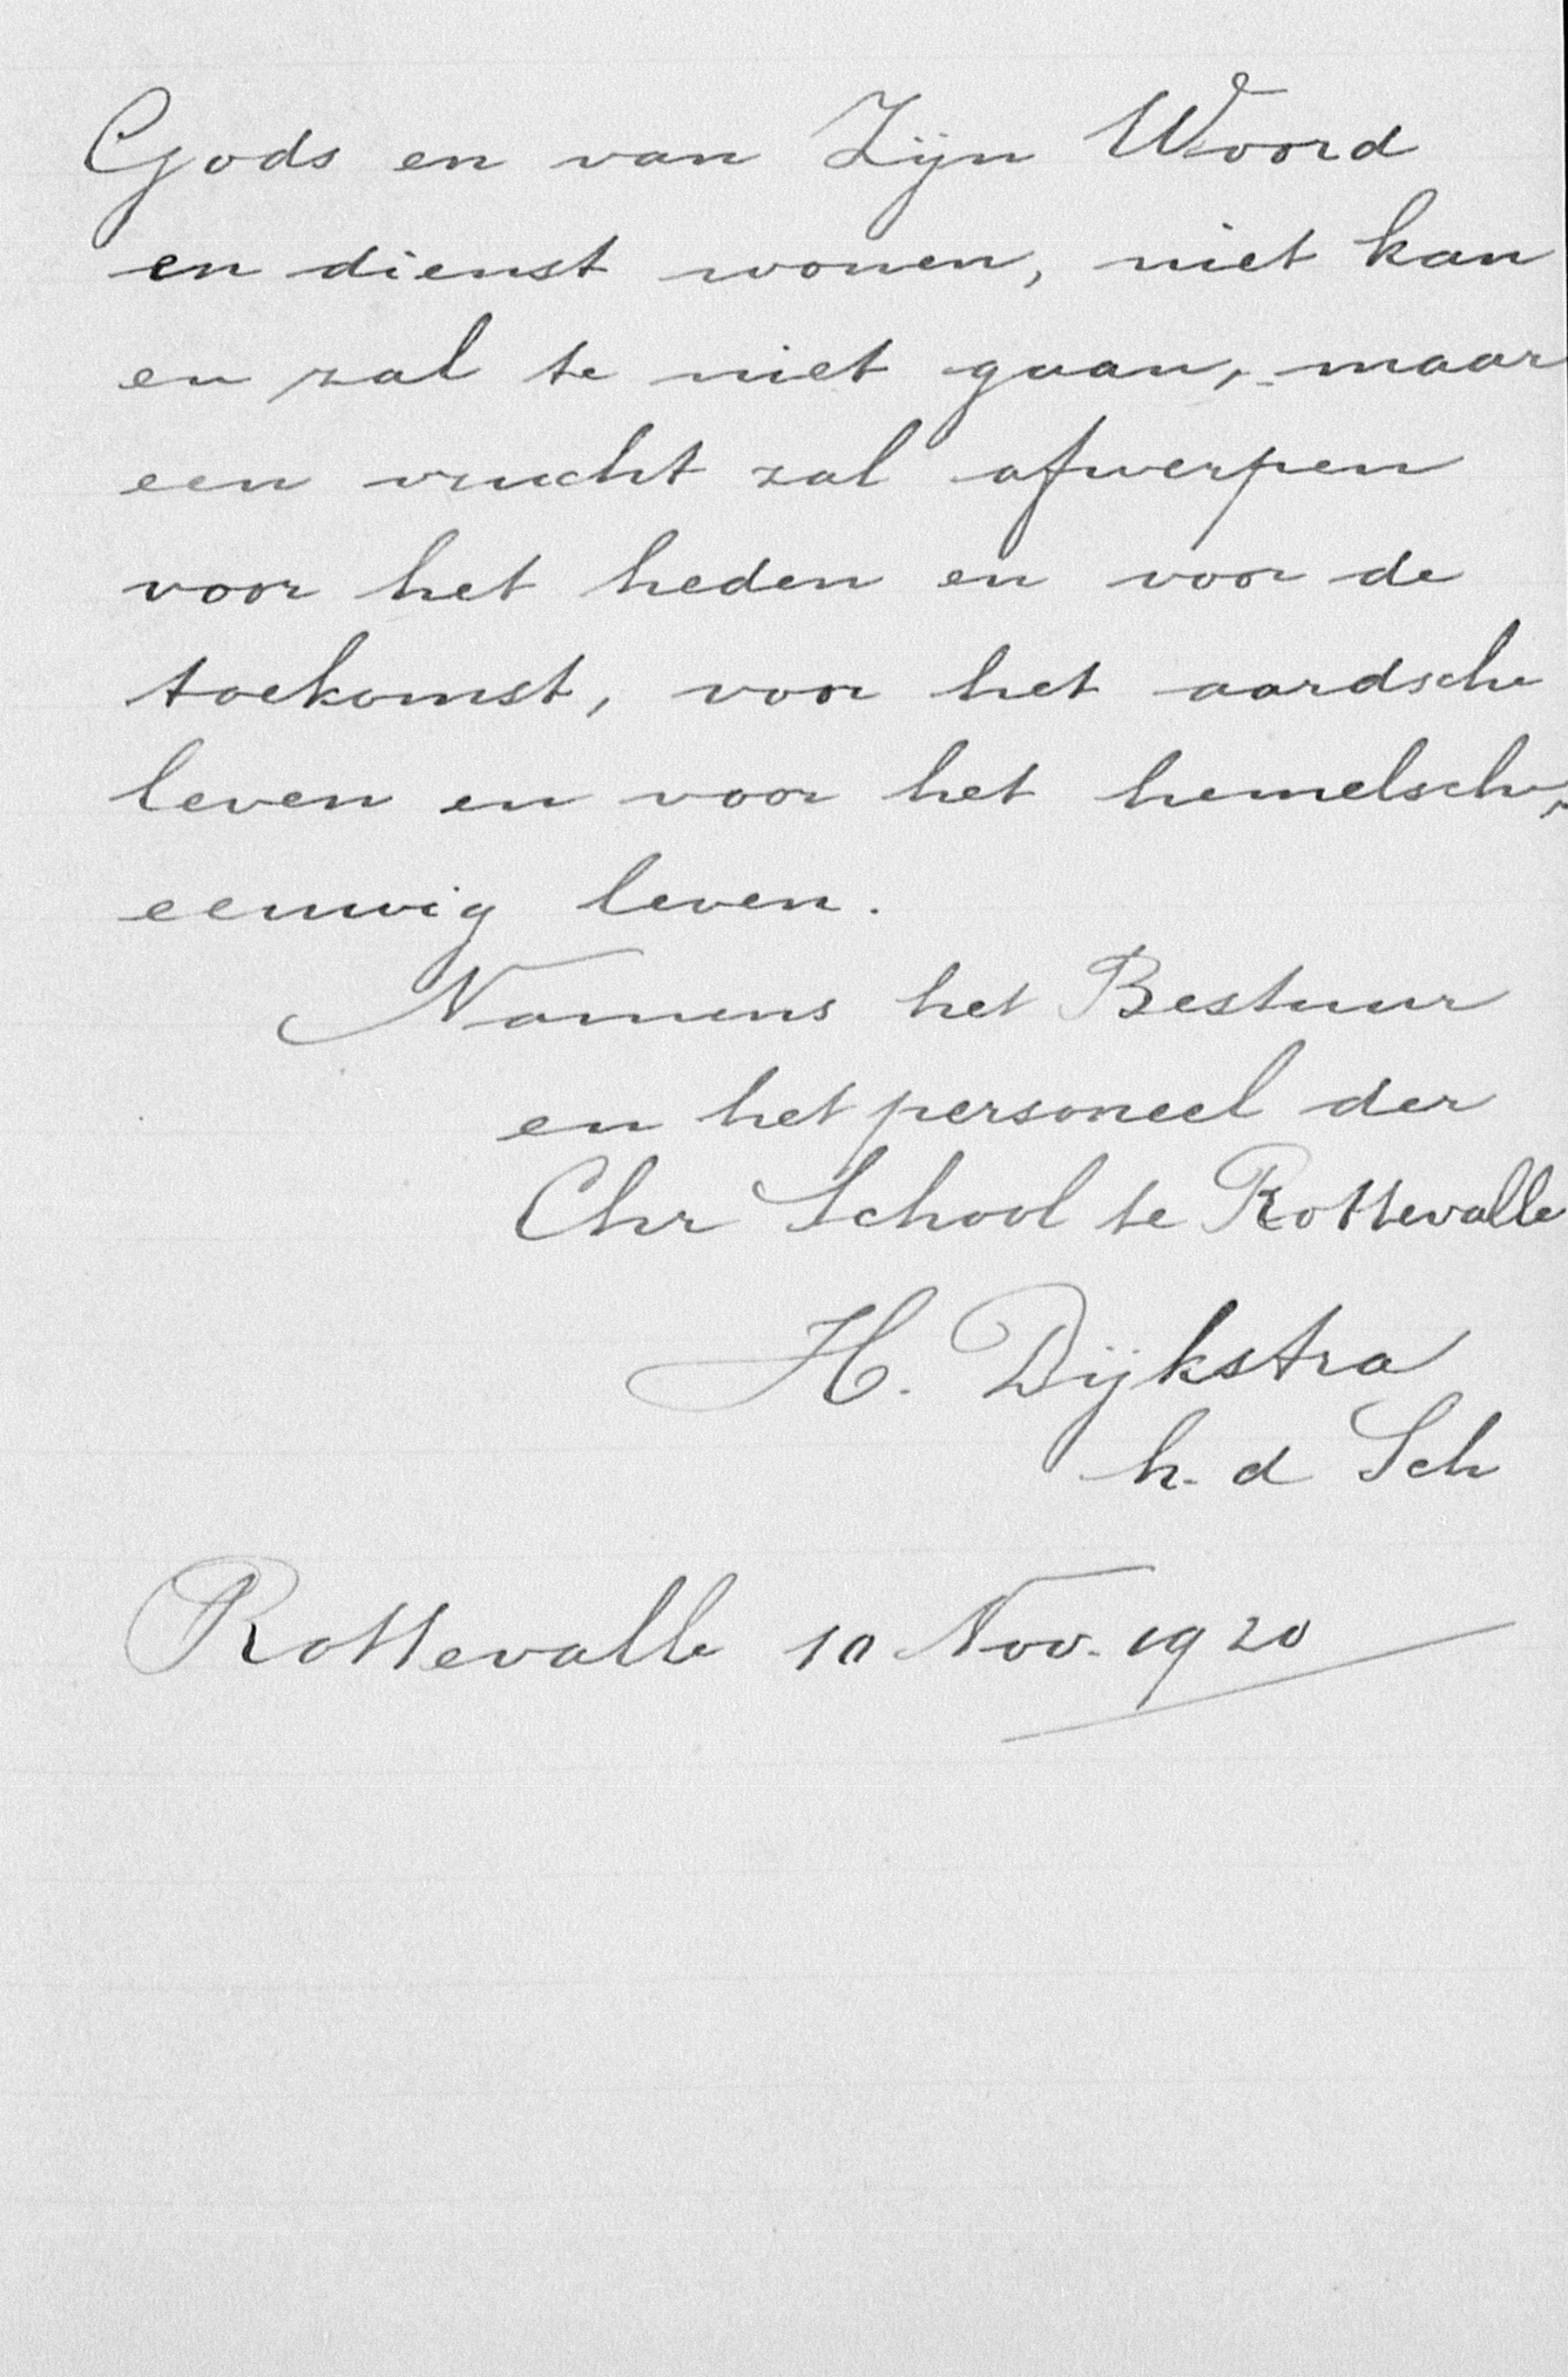 Gods en van Zijn Woord
en dienst wonen, niet kan
en zal te niet gaan, maar
een vrucht zal afwerpen
voor het heden en voor de
toekomst, voor het aardsche
leven en voor het hemelsche,
eeuwig leven.
Namens het Bestuur
en het personeel der
Chr School te Rottevalle
H. Dijkstra
h. d Sch
Rottevalle 10 Nov. 1920